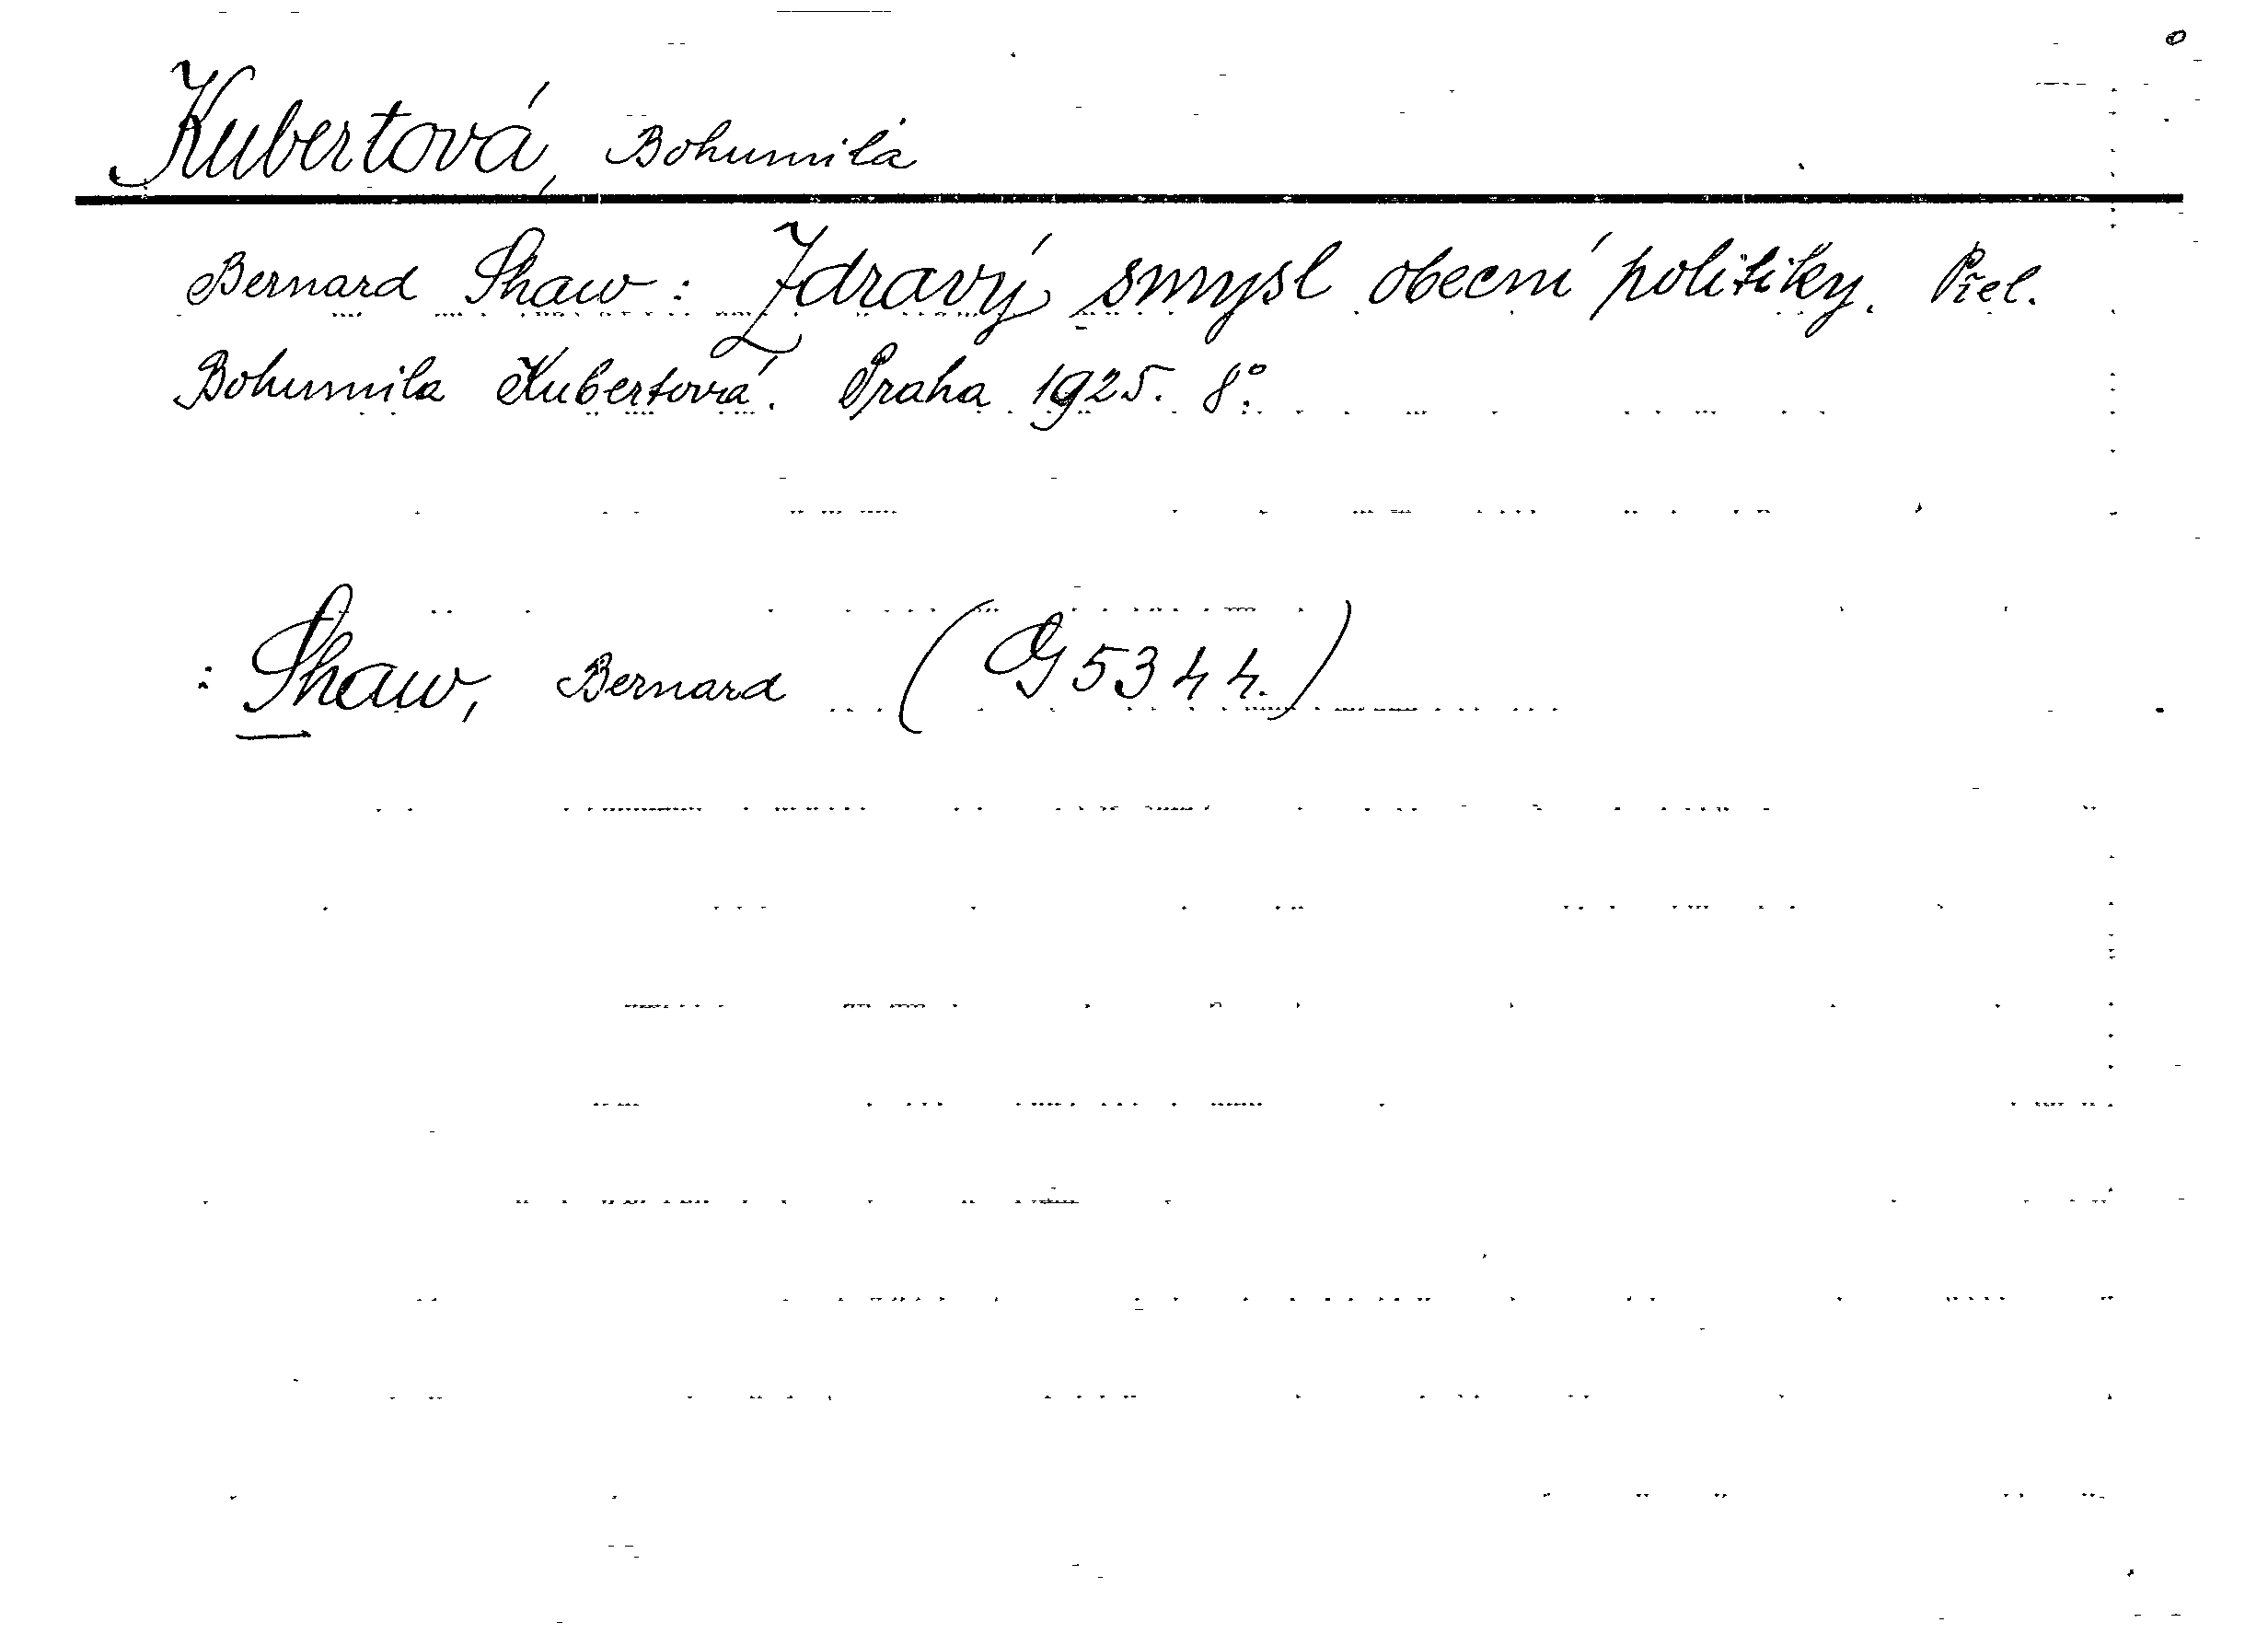 Kubertová, Bohumila
Bernard Shaw: Zdravý smysl obecní politiky. Přel.
Bohumila Kubertová. Praha 1925. 8°.
: Shaw, Bernard (G 5344.)